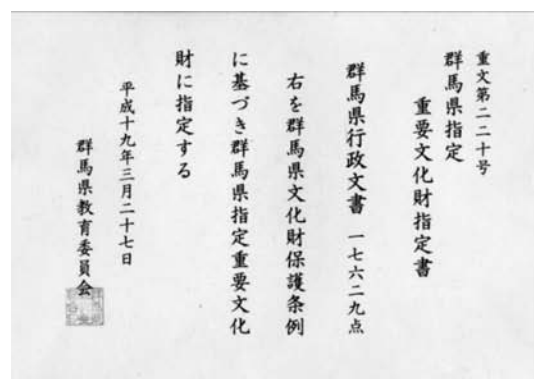 重文第二二十号
群馬県指定
重要文化財指定書
群馬県行政文書 一七六二九点
右を群馬県文化財保護条例
に基づき群馬県指定重要文化
財に指定する
平成十九年三月二十七日
群馬県教育委員会